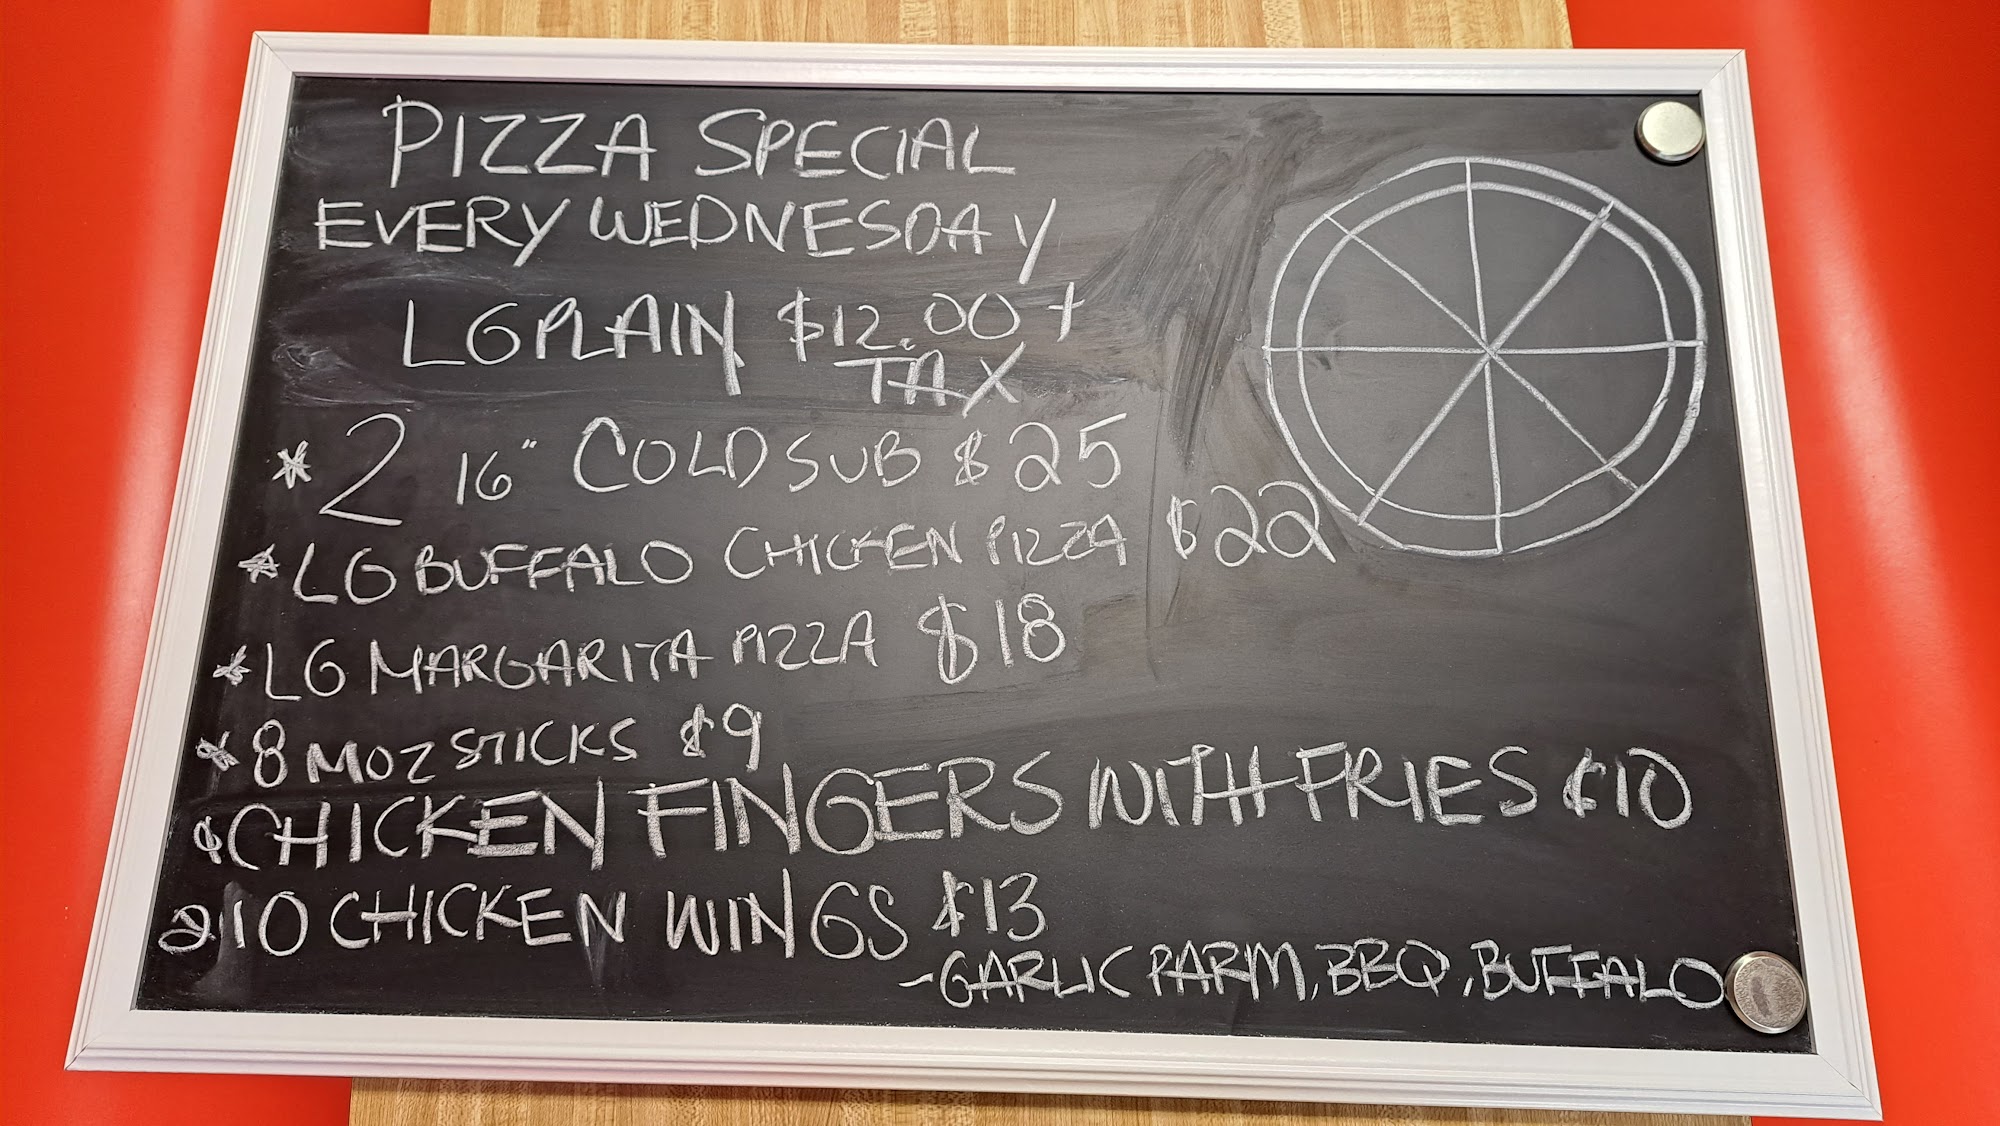 PIZZA SPECIAL
EVERY WEDNESDAY
LG PLAIN $12.00 +
TAX
* 2 16" COLD SUB $25
* LG BUFFALO CHICKEN PIZZA $22
* LG MARGARITA PIZZA $18
* 8 MOZ STICKS $9
* CHICKEN FINGERS WITH FRIES $10
* 10 CHICKEN WINGS $13
- GARLIC PARM, BBQ, BUFFALO